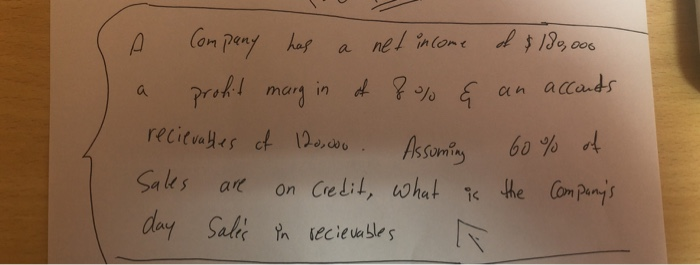 A Company has a net income of $180,000
a profit margin of 8% & an accounts
recievables of 120,000. Assuming 60% of
Sales are on Credit, what is the Company's
day Sale's in recievables